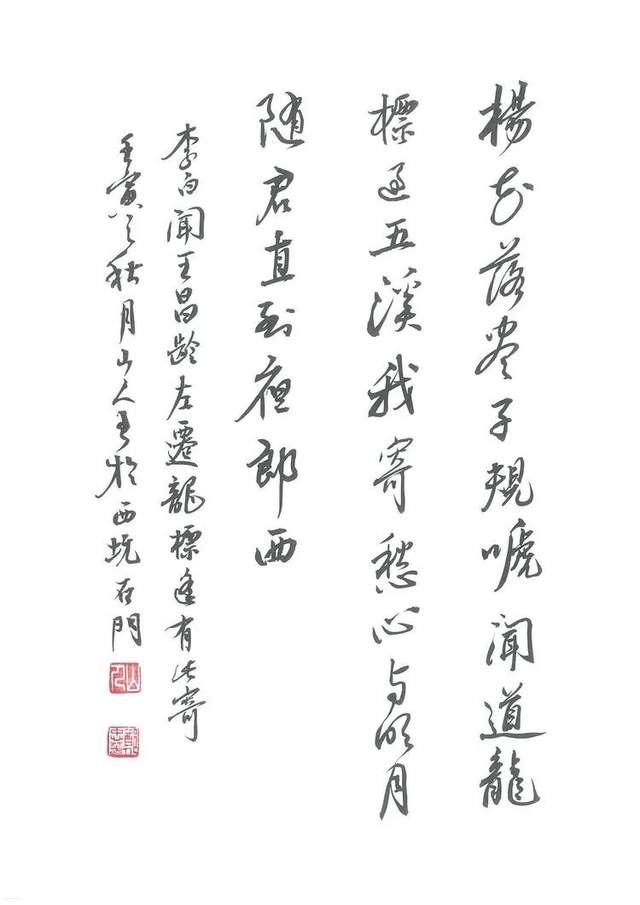 楊花落盡子規嗁聞道龍
標過五溪我寄愁心与明月
随君直到夜郎西
李白聞王昌齡左遷龍標遥有此寄
壬寅之秋月山人书於西坑石門
山人